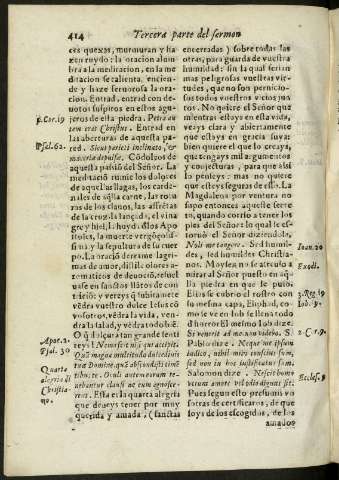 414
Tercera parte del sermon
ces quexas, murmuran y ha
zen ruydo: la oracion alum
bra a la meditacion, en la me
ditacion se calienta, enciende
y haze feruorosa la
oracion. Entrad, entrad con de
uotos suspiros en estos agu
jeros desta piedra. Petra au
tem erat Christus. Entrad en
las aberturas de aquesta pa
red. Sicut parieti inclinato, &
maceriæ depulsæ. Cõdoleos de
aquesta passiõ del Señor. La
meditaciõ rumie los dolores
de aquellas llagas, los carde
nales de aq̃lla carne, las rotu
ras de los clauos, las
de la cruz, la lançada, el vina
gre y hiel, la huyda de los Apo
stoles, la muerte vergonçosis
sima y la sepultura de su cuer
po. La oraciõ derrame lagri
mas de amor, distile olores a-
romaticos de deuociõ, resuel
uase en sanctos llãtos de con
tricion: y vereys q̃ subitamente
vẽdra vuestro dulce Iesu a
vosotros, vẽdra la vida, ven
drá la salud, y vẽdra todo biẽ.
O q̃ dulçura tan grande senti
reys! Nemo scit nisi qui accipit.
Quã magna multitudo dulcedinis
tuæ Domine, quã abscondisti timẽ
tibus te. Oculi autem eorum te-
nebantur clausi ne eum agnosce-
rent. Esta es la quarta alegria
que deueys tener por muy
querida y amada, (sanctas
encerradas) sobre todas las
otras, para guarda de vuestra
humildad: sin la qual serian
mas peligrosas vuestras vir
tudes, que no son pernicio-
sos todos nuestros vicios jun
tos. No quiere el Señor que
mientras estays en esta vida,
veays clara y abiertamente
que estays en gracia suya:
bien quiere el que lo creays,
que tengays mil argumentos
y conjecturas, para que assi
lo penseys: mas no quiere
que esteys seguras de esso. La
Magdalena por ventura
estaua en aquesta alegria terre
to, quando corrio a tener los
pies del Señor la qual le es-
toruò el Señor diziendola,
Noli me tangere. Sed humil-
des, sed humildes Christia-
nos. Moysen no se atreuio a
mirar al Señor puesto en aq̃
lla piedra en que le puso.
Elias se cubrio el rostro con
su mesma capa, Eliphad, co-
mo le ve en Iob se llena todo
d'horror. El mesmo Iob dize.
Si venerit ad me non videbo. S.
Pablo dize. Neque me ipsum
iudico, nihil mihi conscius sum,
sed non in hoc iustificatus sum.
Salomon dize. Nescit homo
vtrum amore vel odio dignus sit.
Pues segun esto presumir vo
sotras de certificaros, de que
soys de los escogidos, de los
amados
1. Cor. 19
Psal. 62.
Apoc. 2.
Psal. 30
Quarta
alegria d̃l
Christia-
no.
Ioan. 20
Exodi.
3. Reg. 19
Iob. 9.
2. Cor. 9.
Eccles. 9